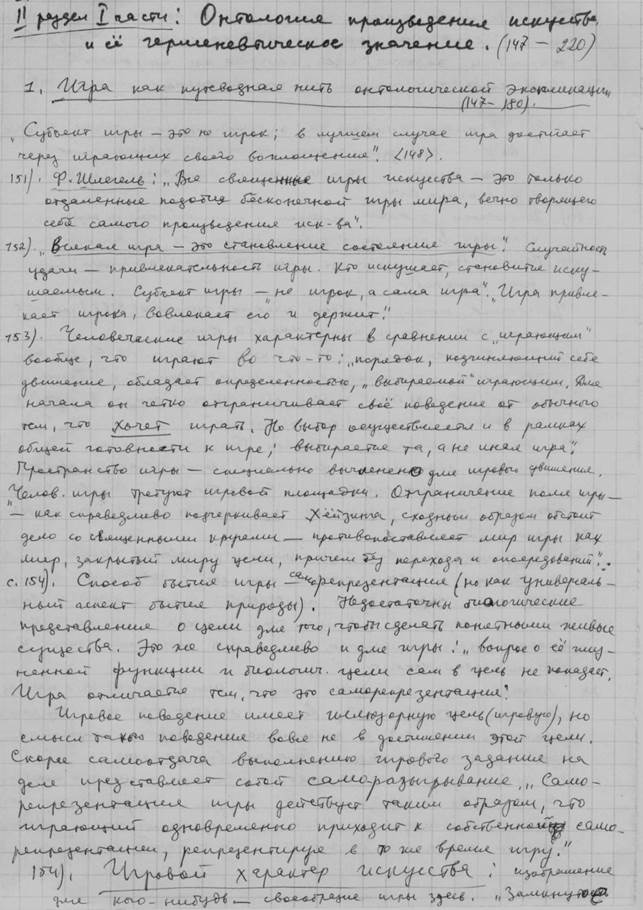 II раздел I части: Онтология произведения искусства
и её герменевтическое значение. (147 – 220)
1. Игра как путеводная нить онтологической экспликации
(147 – 180).
„Субъект игры – это не игрок; в лучшем случае игра достигает
через играющих своего воплощения". <148>.
151). Ф. Шлегель: „Все священные игры искусства – это только
отдаленные подобия бесконечной игры мира, вечно творящего
себя самого произведения иск-ва".
152). „Всякая игра – это становление состояния игры". Случайность
удачи – привлекательность игры. Кто искушает, становится иску-
шаемым. Субъект игры – „не игрок, а сама игра". „Игра привле-
кает игрока, вовлекает его и держит".
153). Человеческие игры характерны в сравнении с „играющим"
вообще, что играют во что-то: „порядок, подчиняющий себе
движение, обладает определенностью, „выбираемой" играющим. Для
начала он четко отграничивает своё поведение от обычного
тем, что хочет играть. Но выбор осуществляется и в рамках
общей готовности к игре; выбирается та, а не иная игра".
Пространство игры – специально вычленено для игрового движения.
„Челов. игры требуют игровой площадки. Отграничение поля игры –
– как справедливо подчеркивает Хёйзинга, сходным образом обстоит
дело со священными кругами – противопоставляет мир игры как
мир, закрытый миру цели, причем без перехода и опосредований".
с. 154). Способ бытия игры саморепрезентация (но как универсаль-
ный аспект бытия природы). Недостаточны биологические
представления о цели для того, чтобы сделать понятными живые
существа. Это же справедливо и для игры: „вопрос о её жиз-
ненной функции и биологич. цели сам в цель не попадает.
Игра отличается тем, что это саморепрезентация".
Игровое поведение имеет иллюзорную цель (игровую), но
смысл такого поведения вовсе не в достижении этой цели.
Скорее самоотдача выполнению игрового задания на
деле представляет собой саморазыгрывание. „Само-
репрезентация игры действует таким образом, что
играющий одновременно приходит к собственной само-
репрезентации, репрезентируя в то же время игру".
154). Игровой характер искусства: изображение
для кого-нибудь – своеобразие игры здесь. „Замкнутое